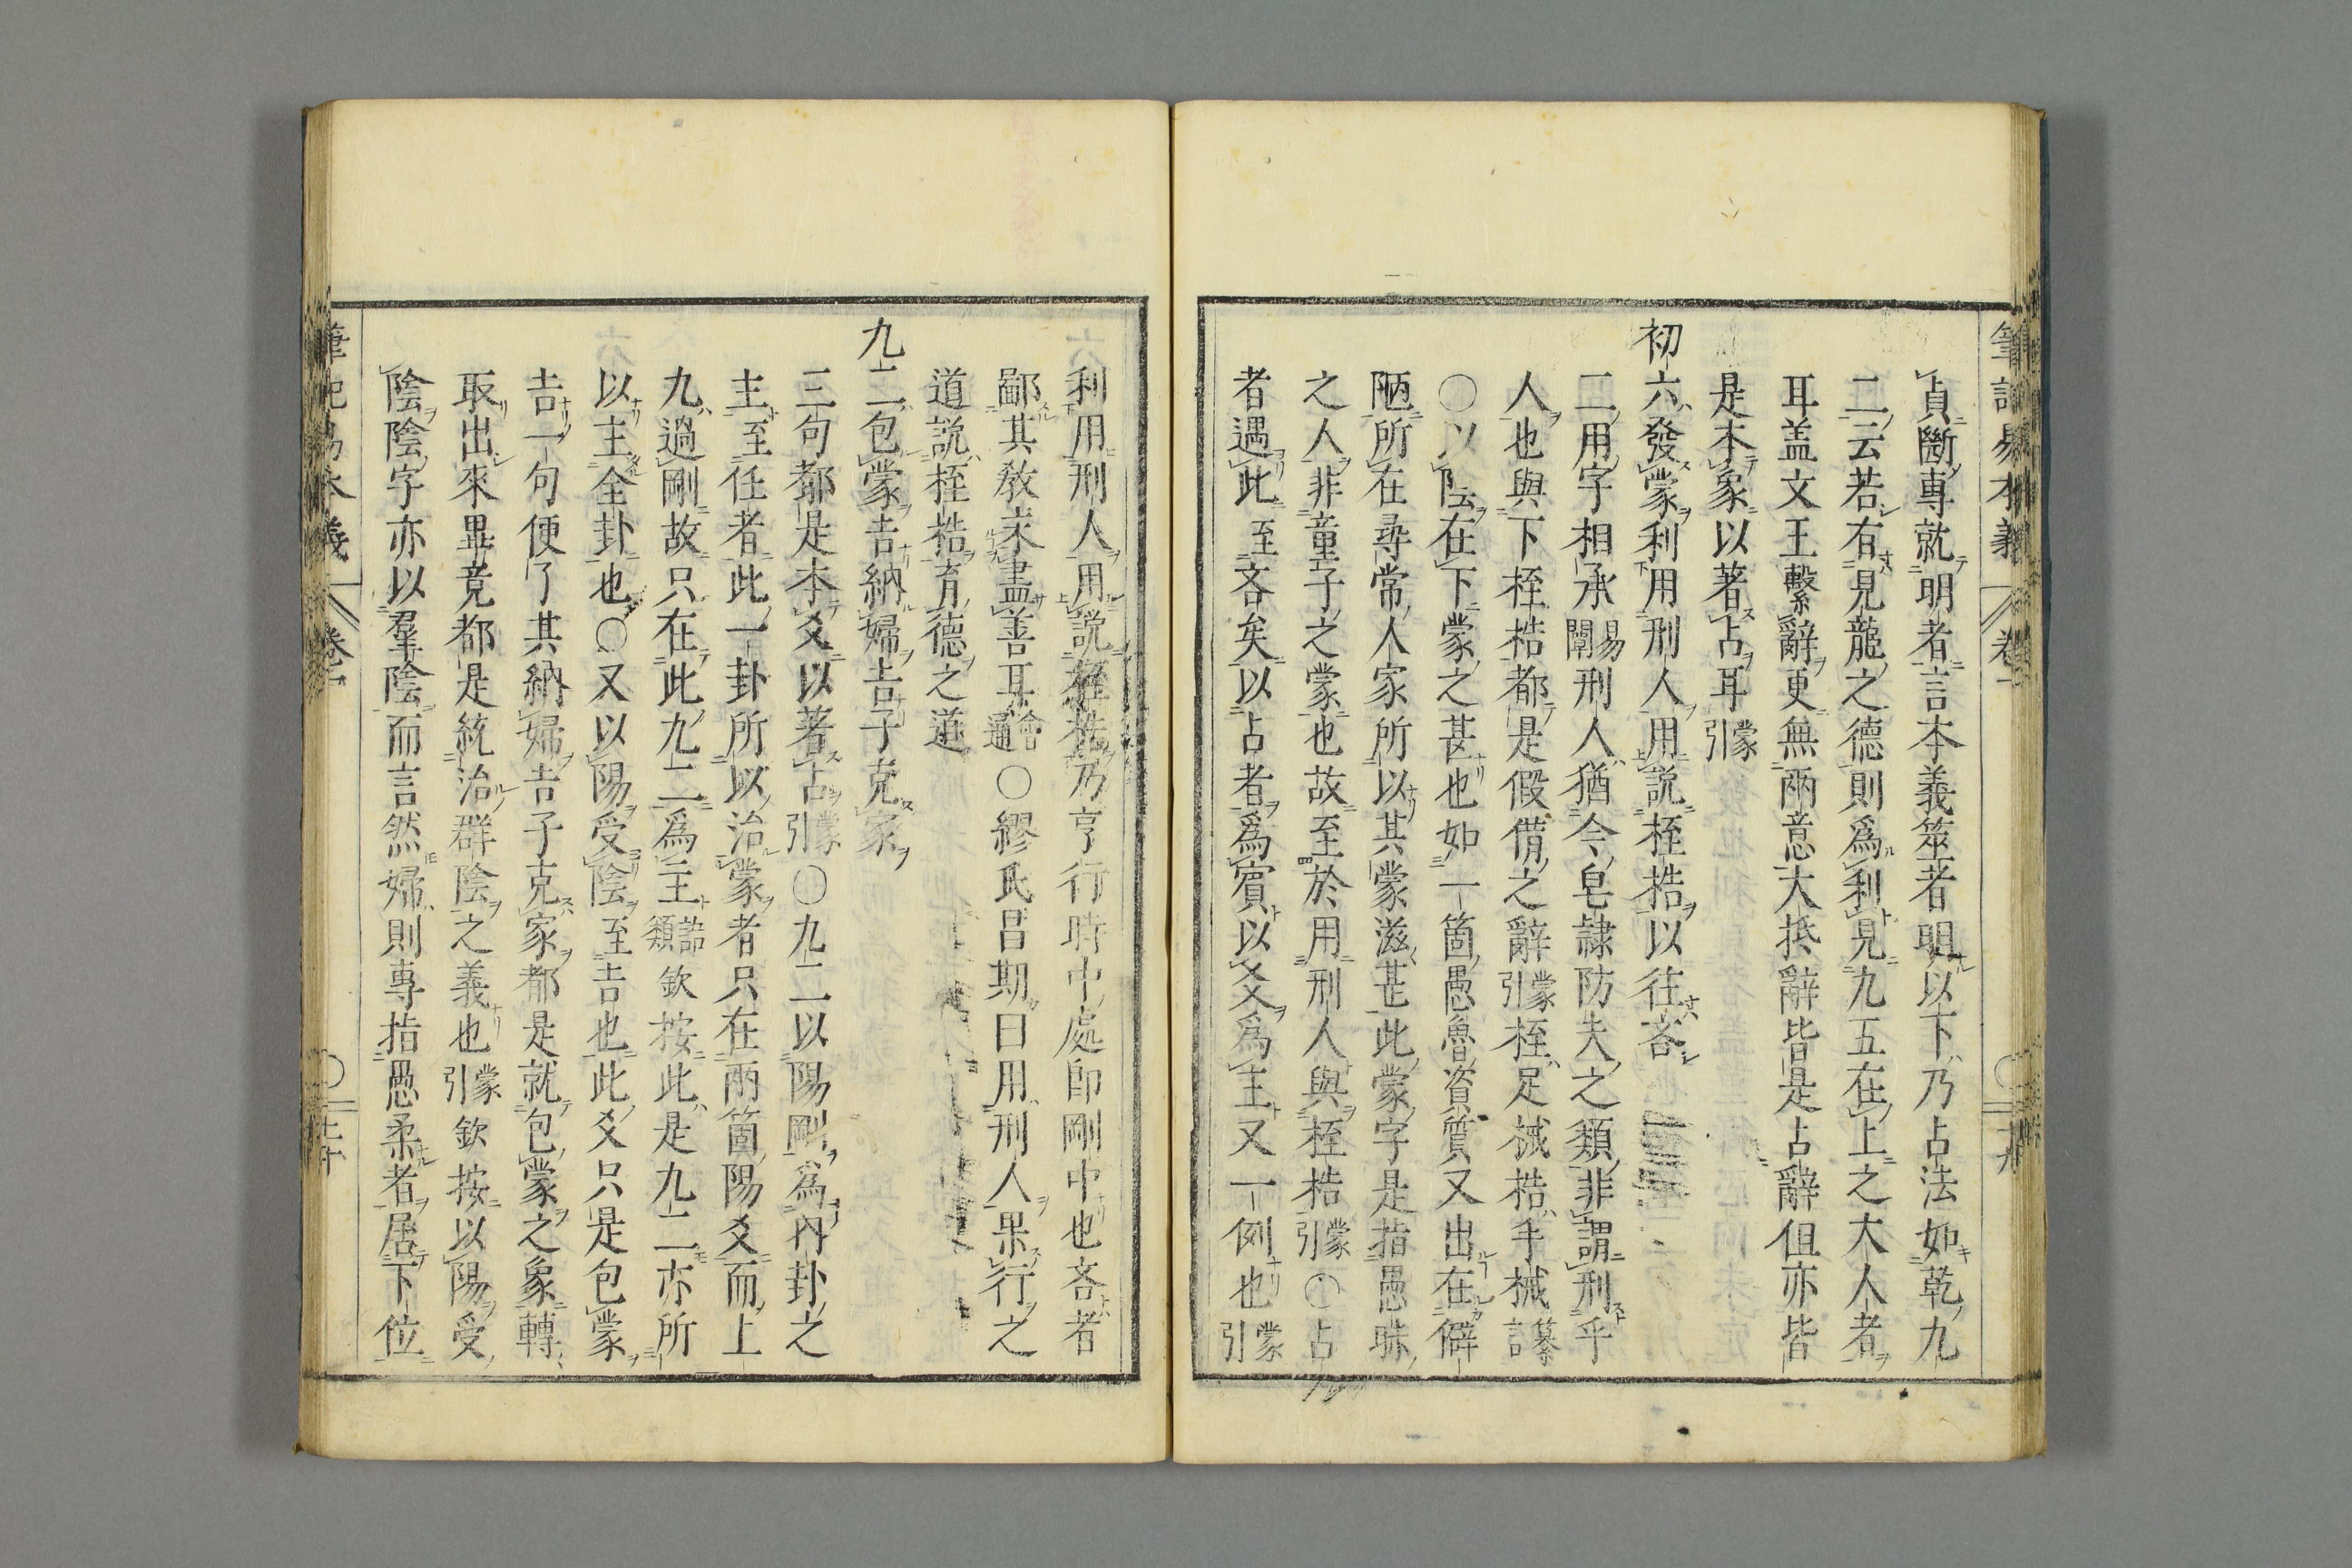 貞斷專就明者言本義筮者明以下乃占法如乾九
二云若有見龍之德則爲利見九五在上之大人者
耳盖文王繫辭更無兩意大抵辭皆是占辭但亦皆
是本象以著占耳蒙引
初六發蒙利用刑人用說桎梏以往吝
二用字相承易闡刑人猶今皂隷防夫之類非謂刑乎
人也與下桎梏都是假借之辭蒙引桎足械梏手械纂言
〇以陰在下蒙之甚也如一箇愚魯資質又出在僻
陋所在尋常人家所以其蒙滋甚此蒙字是指愚昧
之人非童子之蒙也故至於用刑人與桎梏蒙引〇占
者遇此至吝矣以占者爲賓以爻爲主又一例也蒙引
利用刑人用說桎梏乃亨行時中處卽剛中也吝者
鄙其教未盡善耳會通〇繆氏昌期曰用刑人果行之
道說桎梏育德之道
九二包蒙吉納婦吉子克家
三句都是本爻以著占蒙引〇九二以陽剛爲內卦之
主至任者此一卦所以治蒙者只在兩箇陽爻而上
九過剛故只在此九二爲主語類欽按此是九二亦所
以主全卦也〇又以陽受陰至吉也此爻只是包蒙
吉一句便了其納婦吉子克家都是就包蒙之象轉
取出來畢竟都是統治群陰之義也蒙引欽按以陽受
陰陰字亦以羣陰而言然婦則專指愚柔者居下位